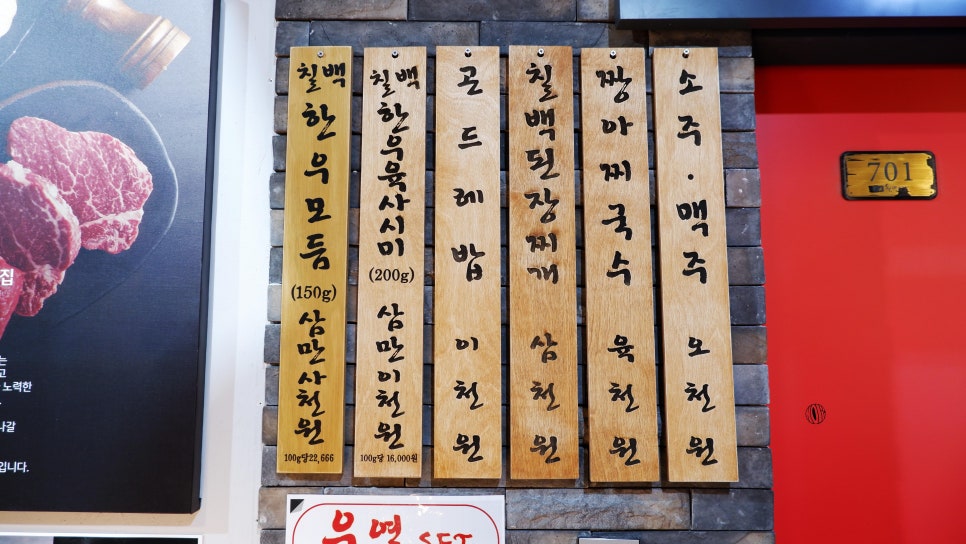 집
고
노력한
나갈
입니다.
칠백
한우모듬
(150g)
삼만사천원
100g당22,666
칠백
한우육사시미
(200g)
삼만이천원
100g당 16,000원
곤드레밥
이천원
칠백된장찌개
삼천원
짱아찌국수
육천원
소주·맥주
오천원
701
SET